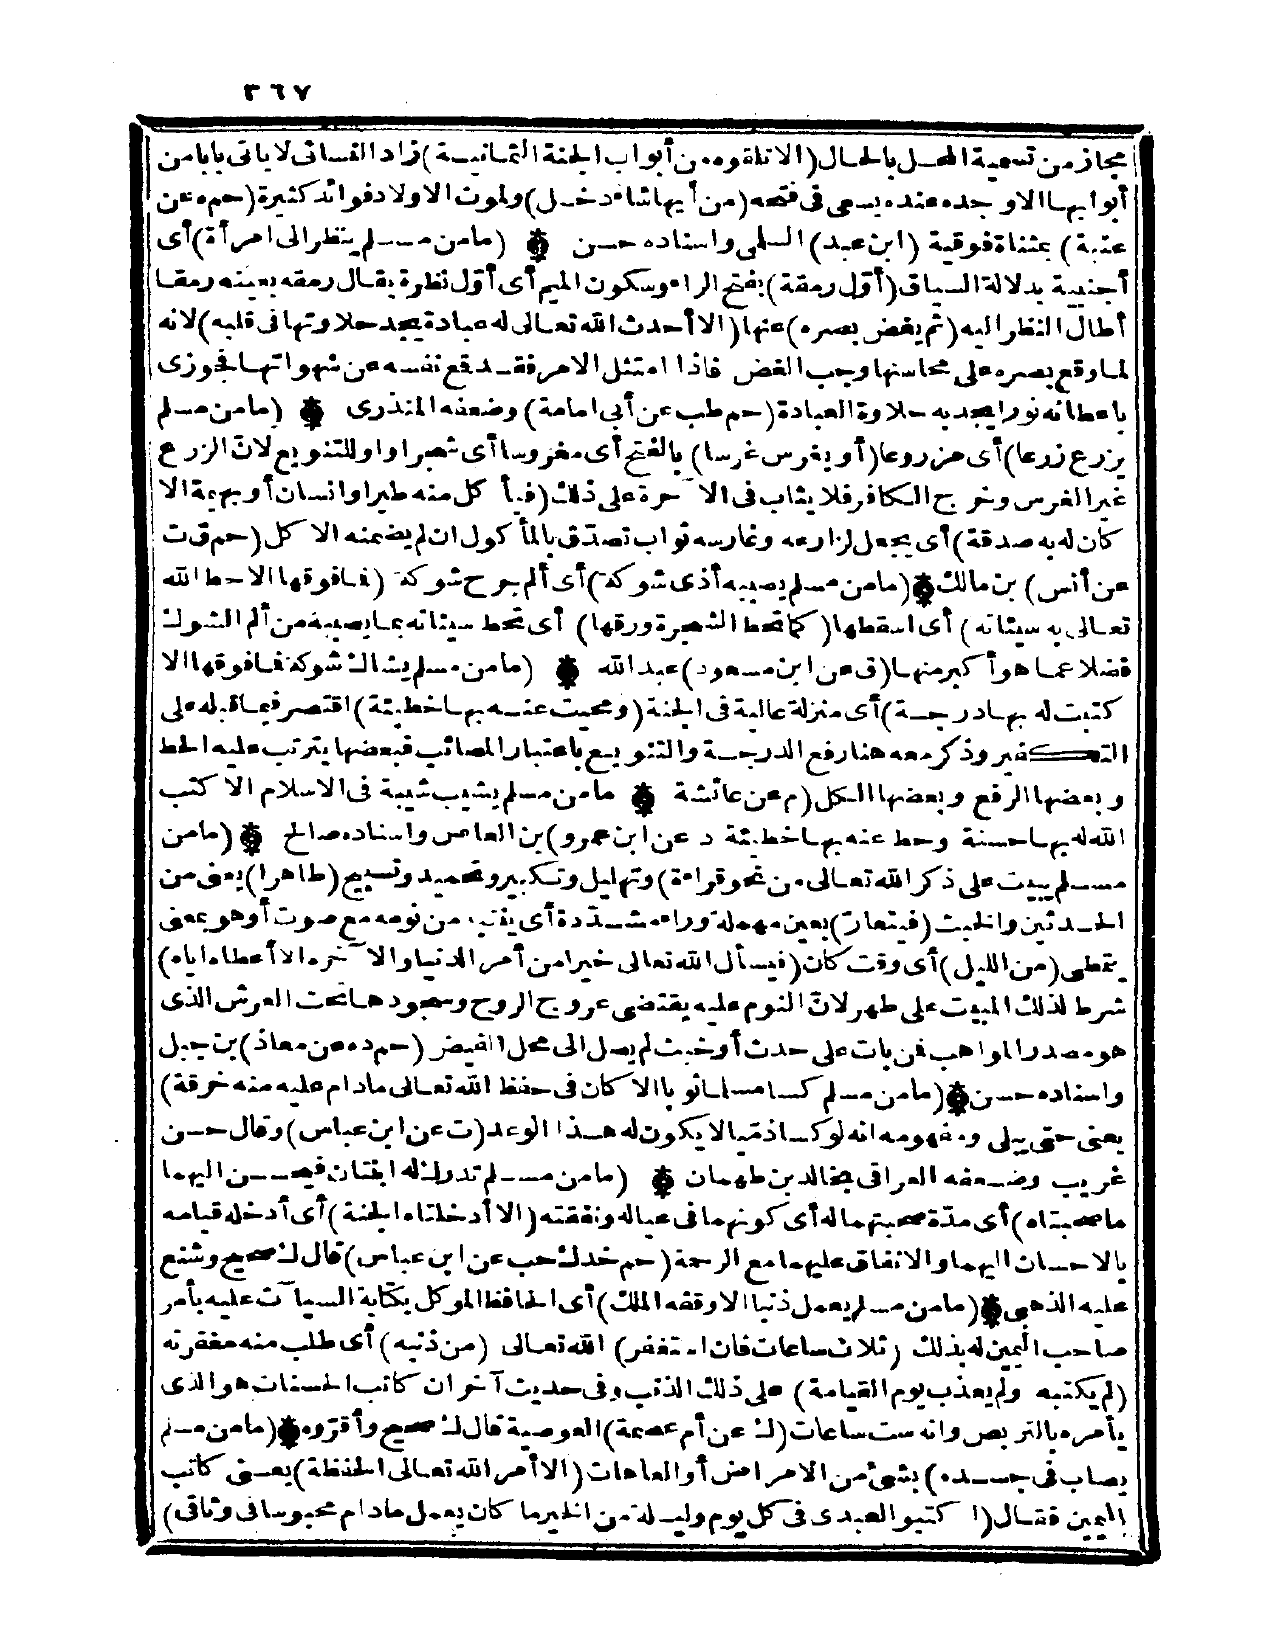 ٣٦٧
مجاز من تسمية المحل بالحال (الا تلقوه من أبواب الجنة الثمانية) زاد النسائى لا يأتى بابا من
أبوابها الا وجده عنده يسعى فى فتحه (من أيها شاء دخل) ولموت الاولاد فوائد كثيرة (حم ه عن
عتبة) بمثناة فوقية (ابن عبد) السلمى واسناده حسن ۞ (ما من مسلم ينظر الى امرأة) أى
أجنبية بدلالة السياق (أوّل رمقة) بفتح الراء وسكون الميم أى أوّل نظرة يقال رمقه بعينه رمقا
أطال النظر اليه (ثم يغض بصره) عنها (الا أحدث الله تعالى له عبادة يجد حلاوتها فى قلبه) لانه
لما وقع بصره على محاسنها وجب الغض فاذا امتثل الامر فقد قمع نفسه عن شهواتها فجوزى
باعطائه نورا يجد به حلاوة العبادة (حم طب عن أبى امامة) وضعفه المنذرى ۞ (ما من مسلم
يزرع زرعا) أى مزروعا (أو يغرس غرسا) بالفتح أى مغروسا أى شجرا واو للتنويع لانّ الزرع
غير الغرس وخرج الكافر فلا يثاب فى الآخرة على ذلك (فيأكل منه طير او انسان أو بهيمة الا
كان له به صدقة) أى يجعل لزارعه وغارسه ثواب تصدّق بالمأكول ان لم يضمنه الاكل (حم ق ت
عن أنس) بن مالك ۞ (ما من مسلم يصيبه أذى شوكة) أى ألم جرح شوكة (فما فوقها الا حط الله
تعالى به سيئاته) أى اسقطها (كما تحط الشجرة ورقها) أى تحط سيئاته بما يصيبه من ألم الشوك
فضلا عما هو أكبر منها (ق عن ابن مسعود) عبد الله ۞ (ما من مسلم يشاك شوكة فما فوقها الا
كتبت له بها درجة) أى منزلة عالية فى الجنة (ومحيت عنه بها خطيئة) اقتصر فيما قبله على
التكفير وذكر معه هنا رفع الدرجة والتنويع باعتبار المصائب فبعضها يترتب عليه الحط
وبعضها الرفع وبعضها الكل (م عن عائشة ۞ ما من مسلم يشيب شيبة فى الاسلام الا كتب
الله له بها حسنة وحط عنه بها خطيئة د عن ابن عمرو) بن العاص واسناده صالح ۞ (ما من
مسلم يبيت على ذكر الله تعالى من نحو قراءة) وتهليل وتكبير وتحميد وتسبيح (طاهرا) يعنى من
الحدثين والخبث (فيتعارّ) بعين مهملة وراء مشدّدة أى ينتبه من نومه مع صوت أو هو بمعنى
يتمطى (من الليل) أى وقت كان (فيسأل الله تعالى خيرا من أمر الدنيا والآخرة الا أعطاه اياه)
شرط لذلك المبيت على طهر لانّ النوم عليه يقتضى عروج الروح وسجودها تحت العرش الذى
هو مصدر المواهب فمن بات على حدث أو خبث لم يصل الى محل الفيض (حم د ه عن معاذ) بن جبل
واسناده حسن ۞ (ما من مسلم كسا مسلما ثوبا الا كان فى حفظ الله تعالى ما دام عليه منه خرقة)
يعنى حتى يبلى ومفهومه انه لو كسا ذمّيا لا يكون له هذا الوعد (ت عن ابن عباس) وقال حسن
غريب وضعفه العراقى بخالد بن طهمان ۞ (ما من مسلم تدرك له ابنتان فيحسن اليهما
ما صحبتاه) أى مدّة صحبتهما له أى كونهما فى عياله ونفقته (الا أدخلتاه الجنة) أى أدخله قيامه
بالاحسان اليهما والانفاق عليهما مع الرحمة (حم خد ك حب عن ابن عباس) قال ك صحيح وشنع
عليه الذهبى ۞ (ما من مسلم يعمل ذنبا الا وقفه الملك) أى الحافظ الموكل بكتابة السيآت عليه بأمر
صاحب اليمين له بذلك (ثلاث ساعات فان استغفر) الله تعالى (من ذنبه) أى طلب منه مغفرته
(لم يكتبه ولم يعذب يوم القيامة) على ذلك الذنب وفى حديث آخر ان كاتب الحسنات هو الذى
يأمره بالتربص وانه ست ساعات (ك عن أم عصمة) العوصية قال ك صحيح وأقرّوه ۞ (ما من مسلم
يصاب فى جسده) بشئ من الامراض أو العاهات (الا أمر الله تعالى الحفظة) يعنى كاتب
اليمين فقال (اكتبوا لعبدى فى كل يوم وليلة من الخير ما كان يعمل ما دام محبوسا فى وثاقى)